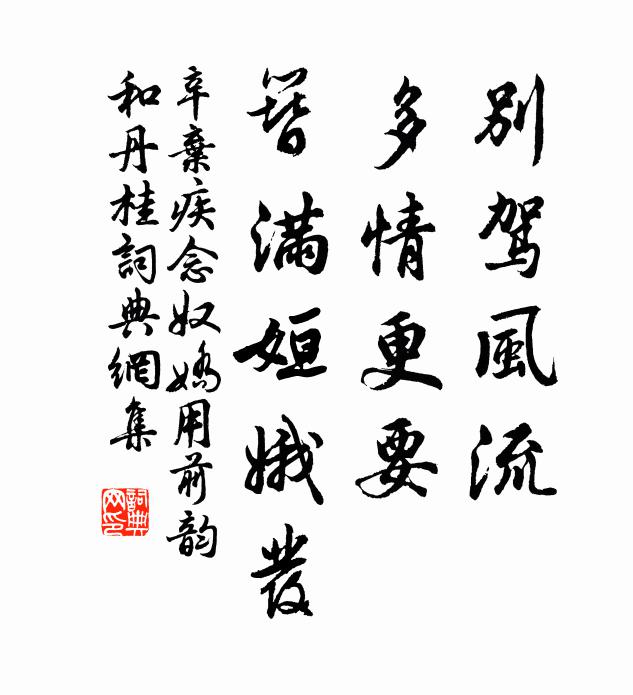 別駕風流
多情更要
簪滿姮娥發
辛棄疾念奴嬌用前韵
和丹桂詞典網集
詞典
网印